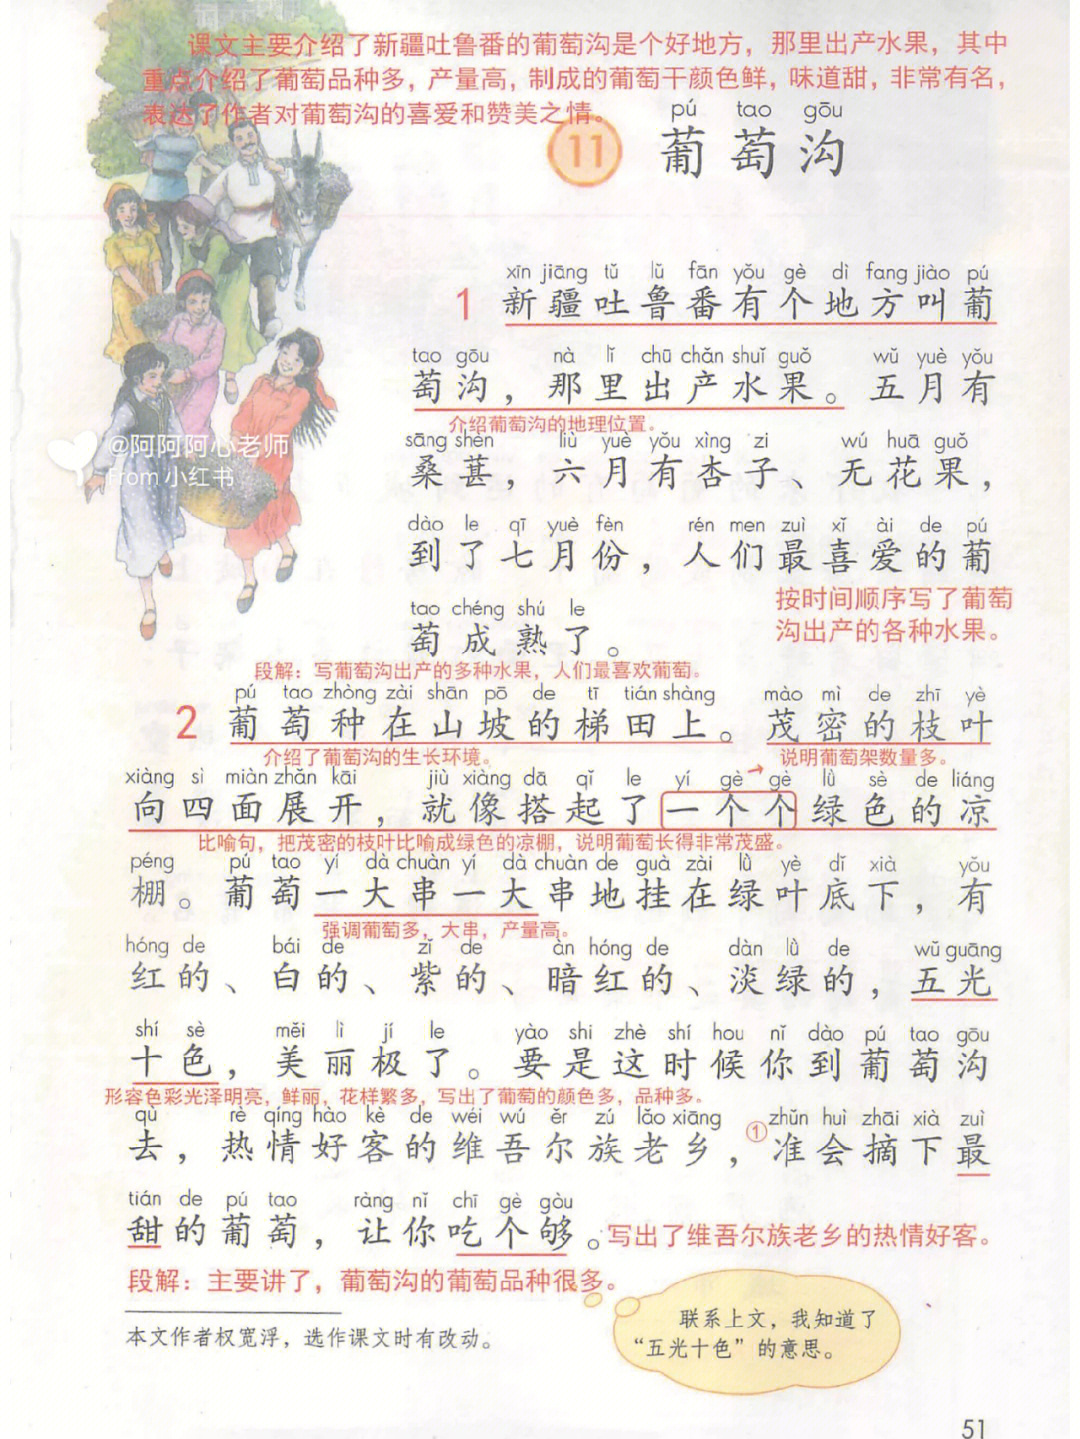 课文主要介绍了新疆吐鲁番的葡萄沟是个好地方，那里出产水果，其中
重点介绍了葡萄品种多，产量高，制成的葡萄干颜色鲜，味道甜，非常有名，
表达了作者对葡萄沟的喜爱和赞美之情。
pú tao gōu
11 葡萄沟
xīn jiāng tǔ lǔ fān yǒu gè dì fang jiào pú
1 新疆吐鲁番有个地方叫葡
tao gōu nà lǐ chū chǎn shuǐ guǒ wǔ yuè yǒu
萄沟，那里出产水果。五月有
介绍葡萄沟的地理位置。
@阿阿阿心老师
From 小红书
sāng shèn liù yuè yǒu xìng zi wú huā guǒ
桑葚，六月有杏子、无花果，
dào le qī yuè fèn rén men zuì xǐ ài de pú
到了七月份，人们最喜爱的葡
按时间顺序写了葡萄
沟出产的各种水果。
tao chéng shú le
萄成熟了。
段解：写葡萄沟出产的多种水果，人们最喜欢葡萄。
pú tao zhòng zài shān pō de tī tián shàng mào mì de zhī yè
2 葡萄种在山坡的梯田上。茂密的枝叶
介绍了葡萄沟的生长环境。 说明葡萄架数量多。
xiàng sì miàn zhǎn kāi jiù xiàng dā qǐ le yí gè→gè lǜ sè de liáng
向四面展开，就像搭起了一个个绿色的凉
比喻句，把茂密的枝叶比喻成绿色的凉棚，说明葡萄长得非常茂盛。
péng pú tao yí dà chuàn yí dà chuàn de guà zài lǜ yè dǐ xià yǒu
棚。葡萄一大串一大串地挂在绿叶底下，有
强调葡萄多，大串，产量高。
hóng de bái de zǐ de àn hóng de dàn lǜ de wǔ guāng
红的、白的、紫的、暗红的、淡绿的，五光
shí sè měi lì jí le yào shi zhè shí hou nǐ dào pú tao gōu
十色，美丽极了。要是这时候你到葡萄沟
形容色彩光泽明亮，鲜丽，花样繁多，写出了葡萄的颜色多，品种多。
qù rè qíng hào kè de wéi wú ěr zú lǎo xiāng zhǔn huì zhāi xià zuì
去，热情好客的维吾尔族老乡，①准会摘下最
tián de pú tao ràng nǐ chī gè gòu
甜的葡萄，让你吃个够。写出了维吾尔族老乡的热情好客。
段解：主要讲了，葡萄沟的葡萄品种很多。
本文作者权宽浮，选作课文时有改动。
联系上文，我知道了
“五光十色”的意思。
51